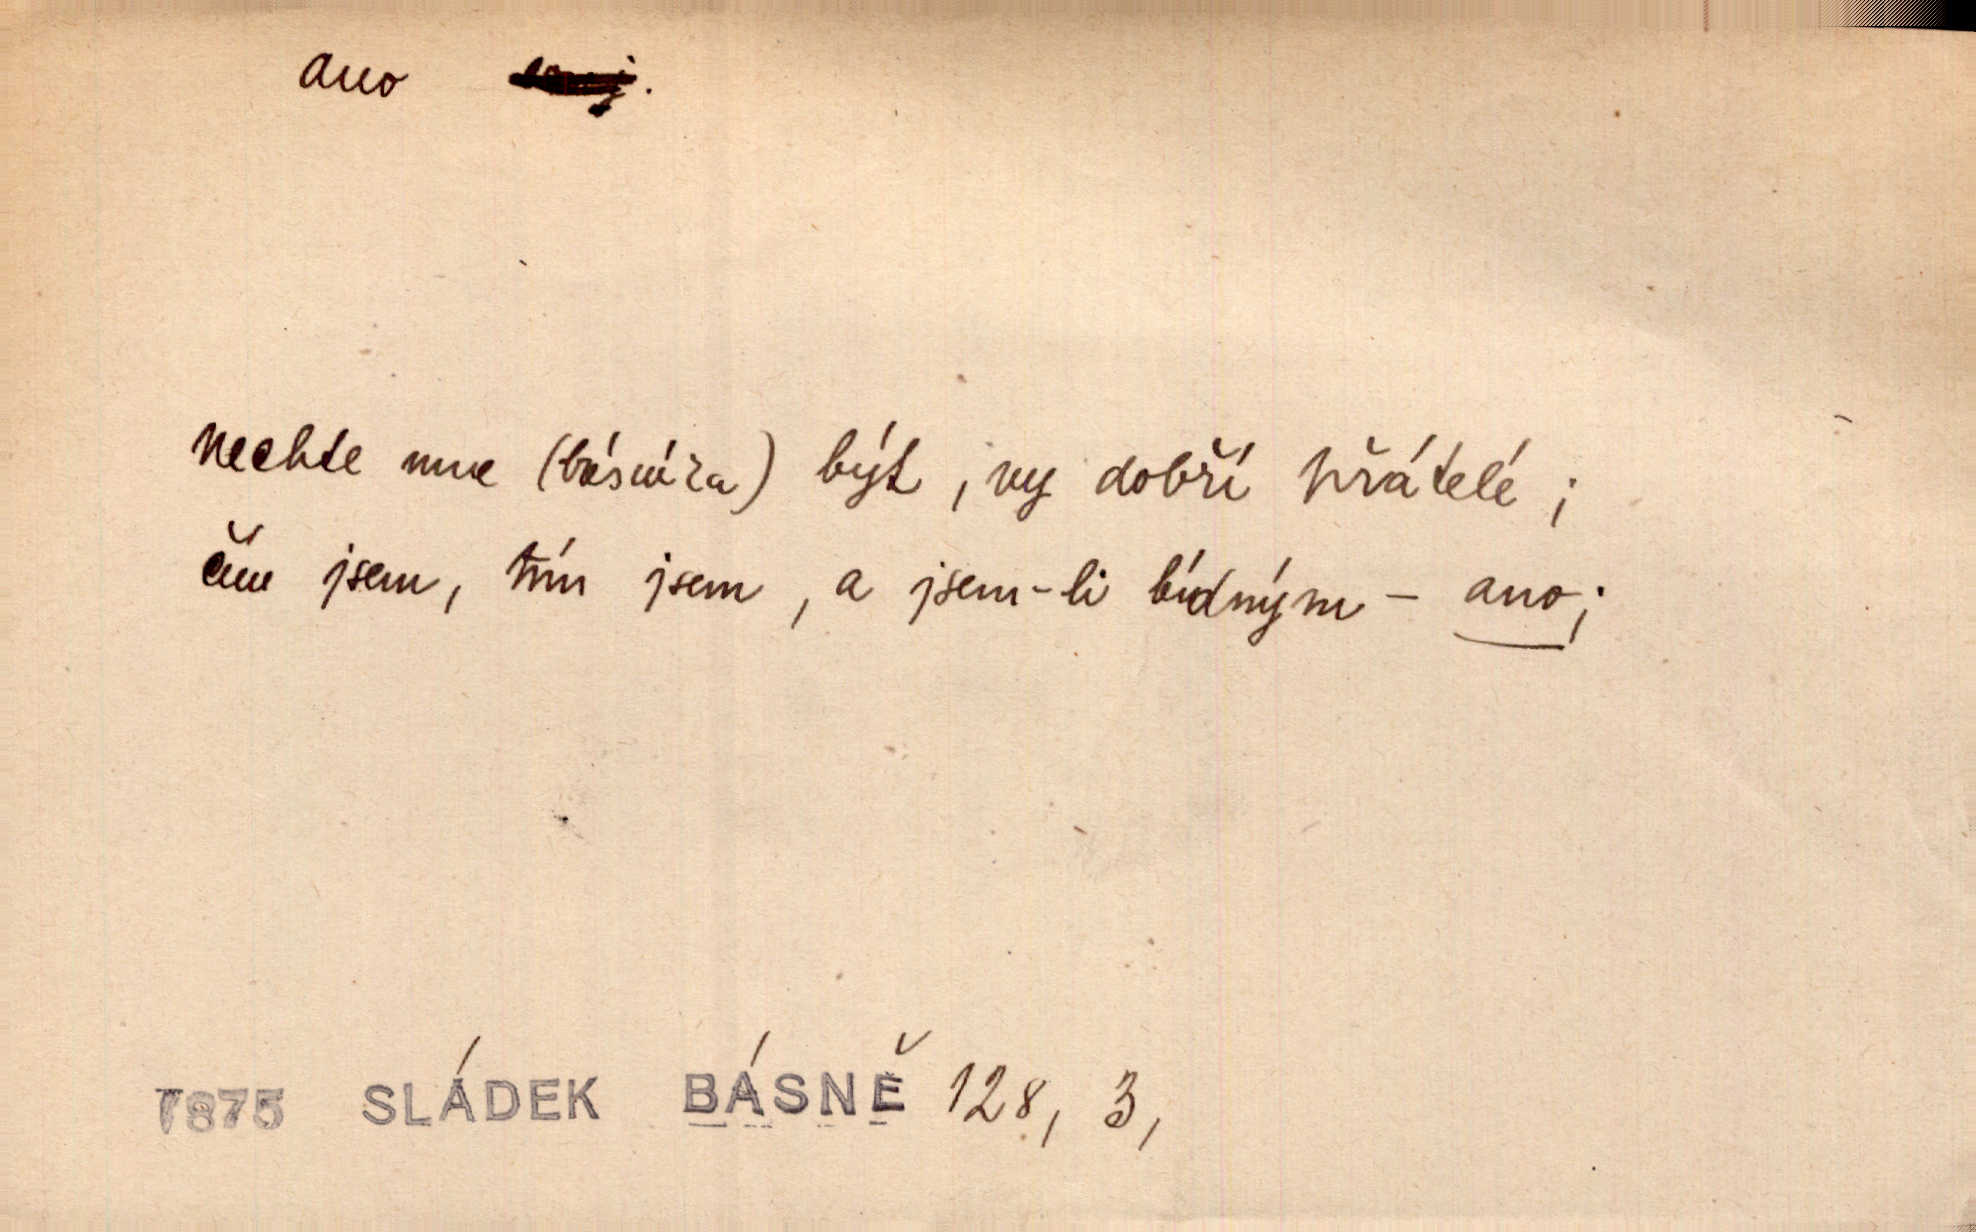 ano
nechte mne (básníka) být, vy dobří přátelé;
čím jsem, tím jsem, a jsem-li bídným - ano;
1875 SLÁDEK BÁSNĚ 128, 3,